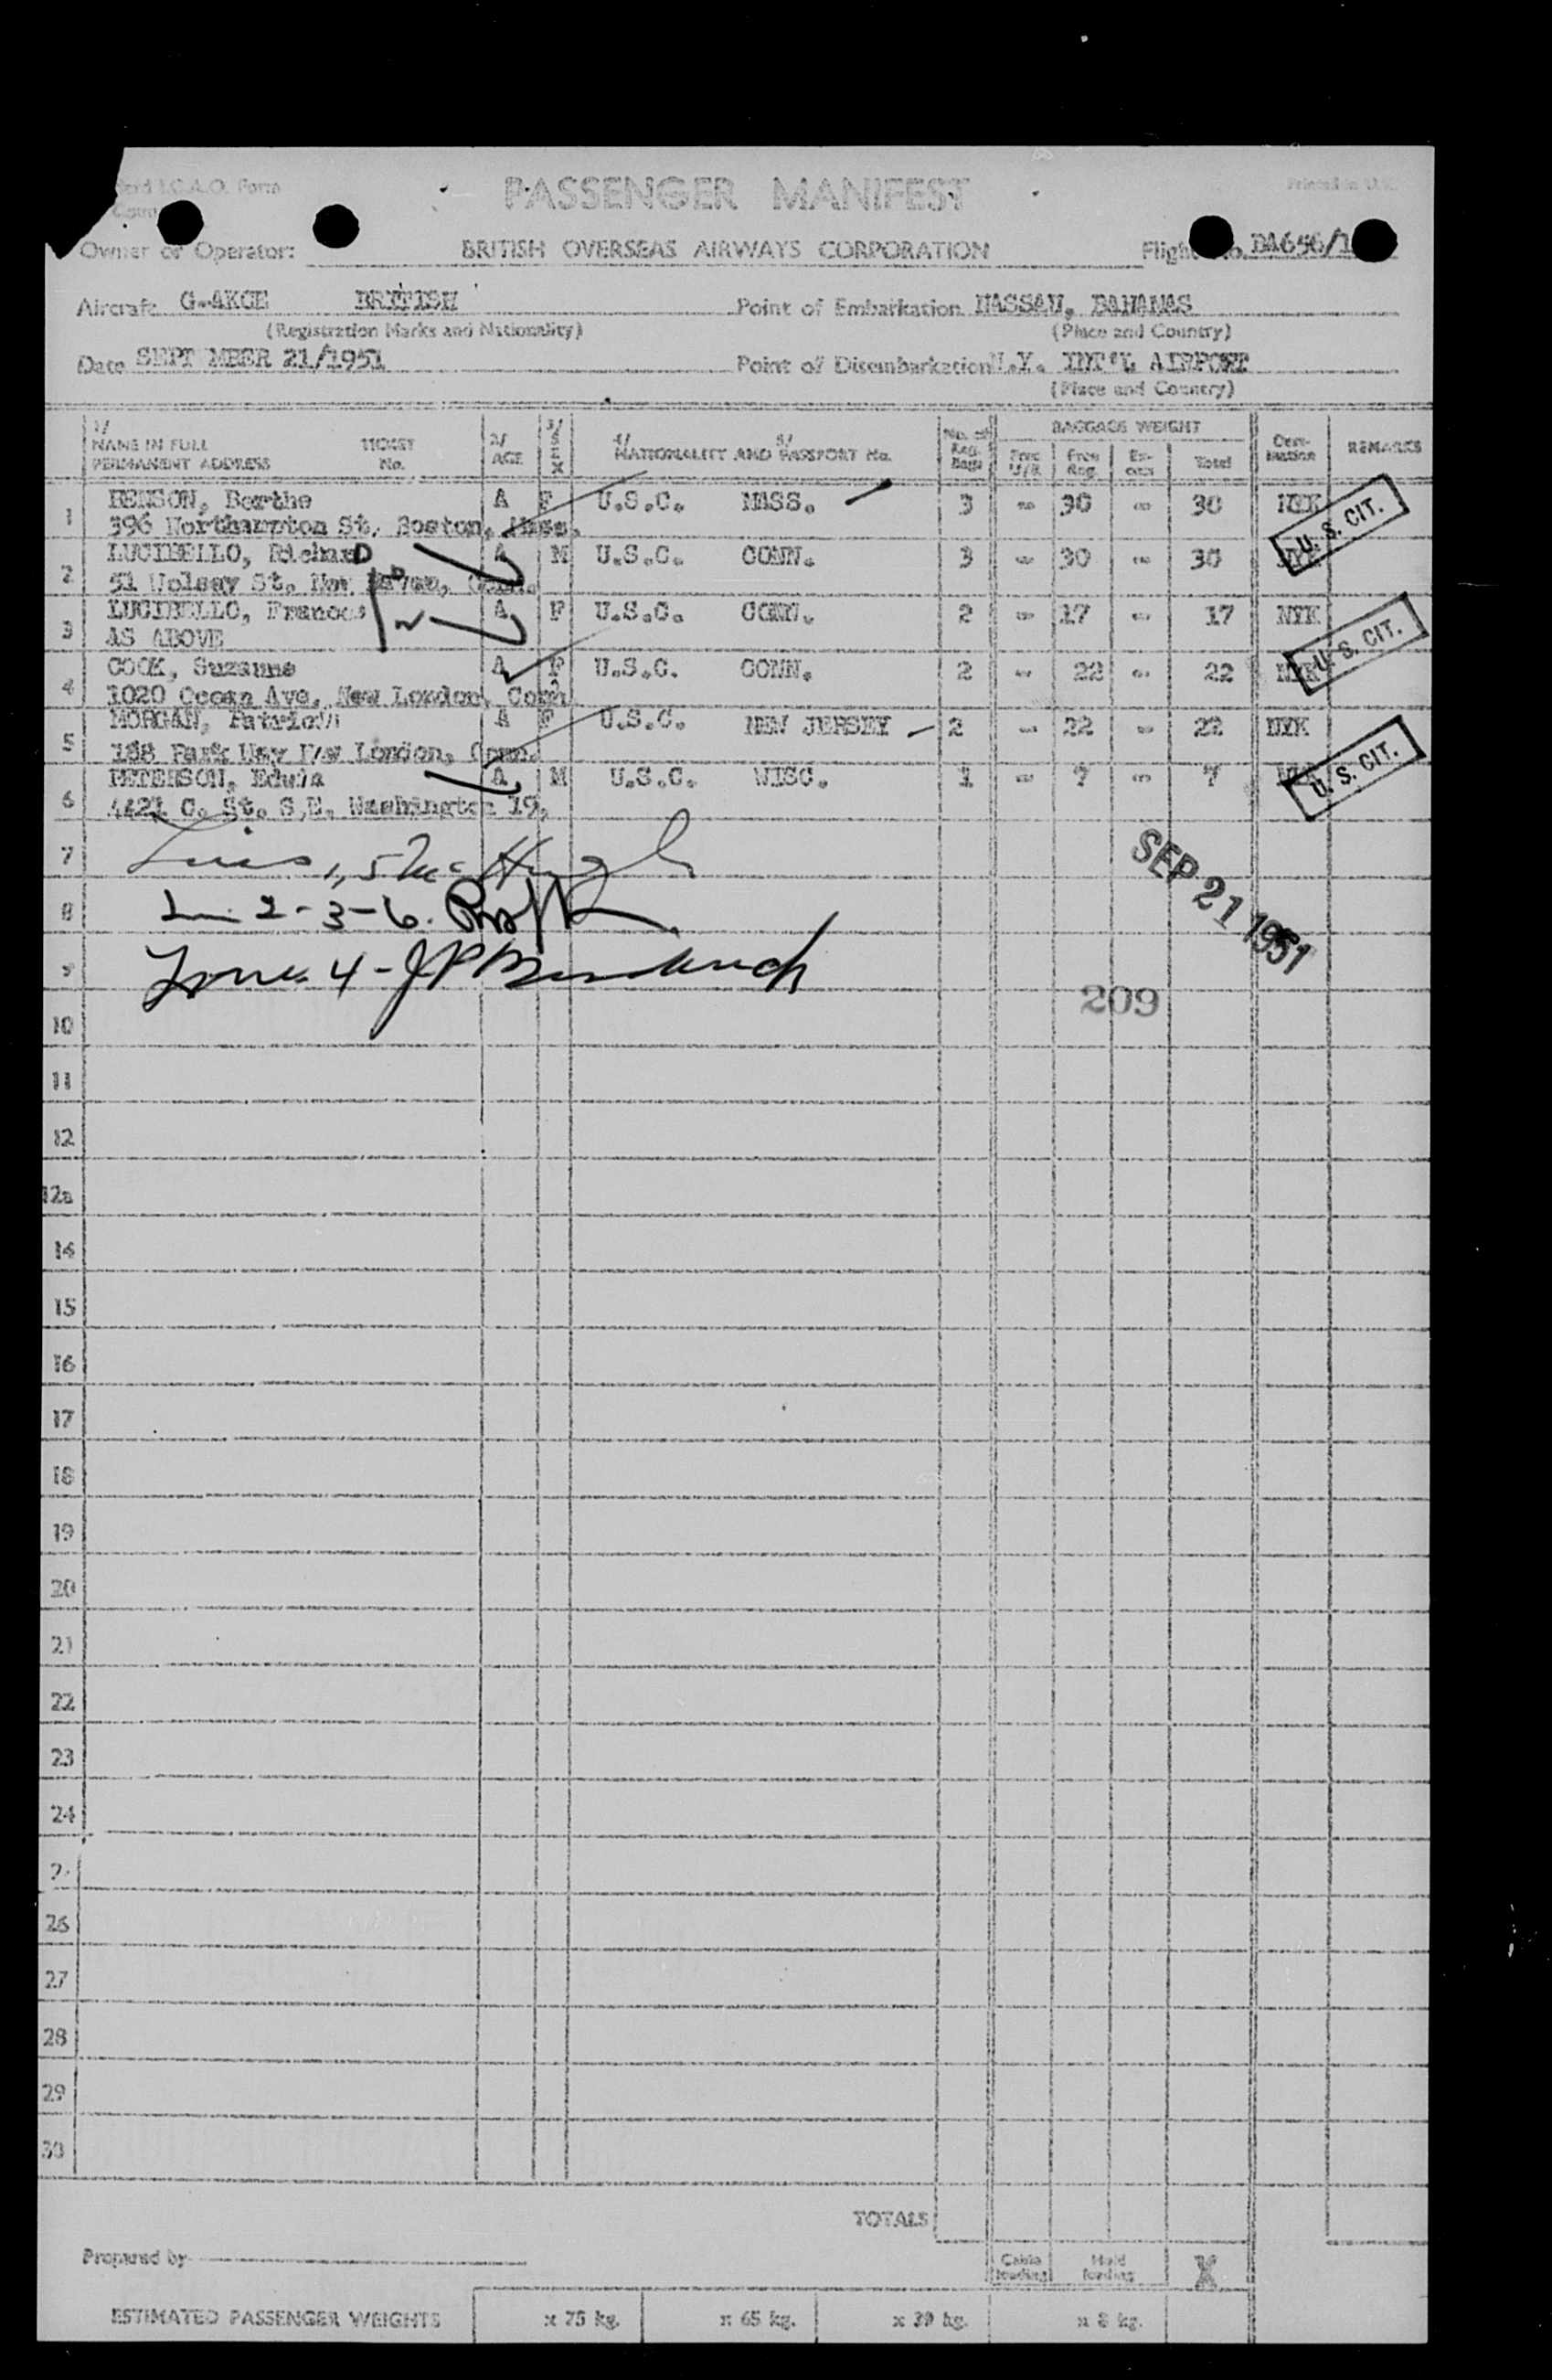 PASSENGER MANIFEST
Printed in U.K.
Owner or Operator: BRITISH OVERSEAS AIRWAYS CORPORATION Flight No. BA656/1
Aircraft G-AKGE BRITISH Point of Embarkation NASSAU, BAHAMAS
(Registration Marks and Nationality) (Place and Country)
Date SEPT MBER 21/1951 Point of Disembarkation N.Y. INT'L AIRPORT
(Place and Country)
1/ NAME IN FULL PERMANENT ADDRESS TICKET No. 2/ AGE 3/ SEX 4/ NATIONALITY AND 5/ PASSPORT No. No. of Reg. Bags BAGGAGE WEIGHT Free Reg. Ex-cess Total Desti-nation REMARKS
1 BENSON, Berthe A F U.S.C. MASS. 3 - 30 - 30 NYK
396 Northampton St. Boston, Mass.
U. S. CIT.
2 LUCIBELLO, RicharD A M U.S.C. CONN. 3 - 30 - 30 NYK
51 Wolsey St. New Haven, Conn.
3 LUCIBELLO, Frances A F U.S.C. CONN. 2 - 17 - 17 NYK
AS ABOVE
U. S. CIT.
4 COOK, Suzanne A F U.S.C. CONN. 2 - 22 - 22 NYK
1020 Ocean Ave, New London, Conn
5 MORGAN, Patricia A F U.S.C. NEW JERSEY 2 - 22 - 22 NYK
188 Park Way New London, Conn.
U. S. CIT.
6 PETERSON, Edwin A M U.S.C. WISC. 1 - 7 - 7
4421 C. St. S.E. Washington 19,
7 Lines 1, 5 McHugh
SEP 21 1951
8 L 2-3-6.
9 Line 4 - JP
209
10
11
12
12a
14
15
16
17
18
19
20
21
22
23
24
2
26
27
28
29
30
TOTALS
Prepared by
Cabin loading Hold loading X
ESTIMATED PASSENGER WEIGHTS x 75 kg. x 65 kg. x 39 kg. x 8 kg.